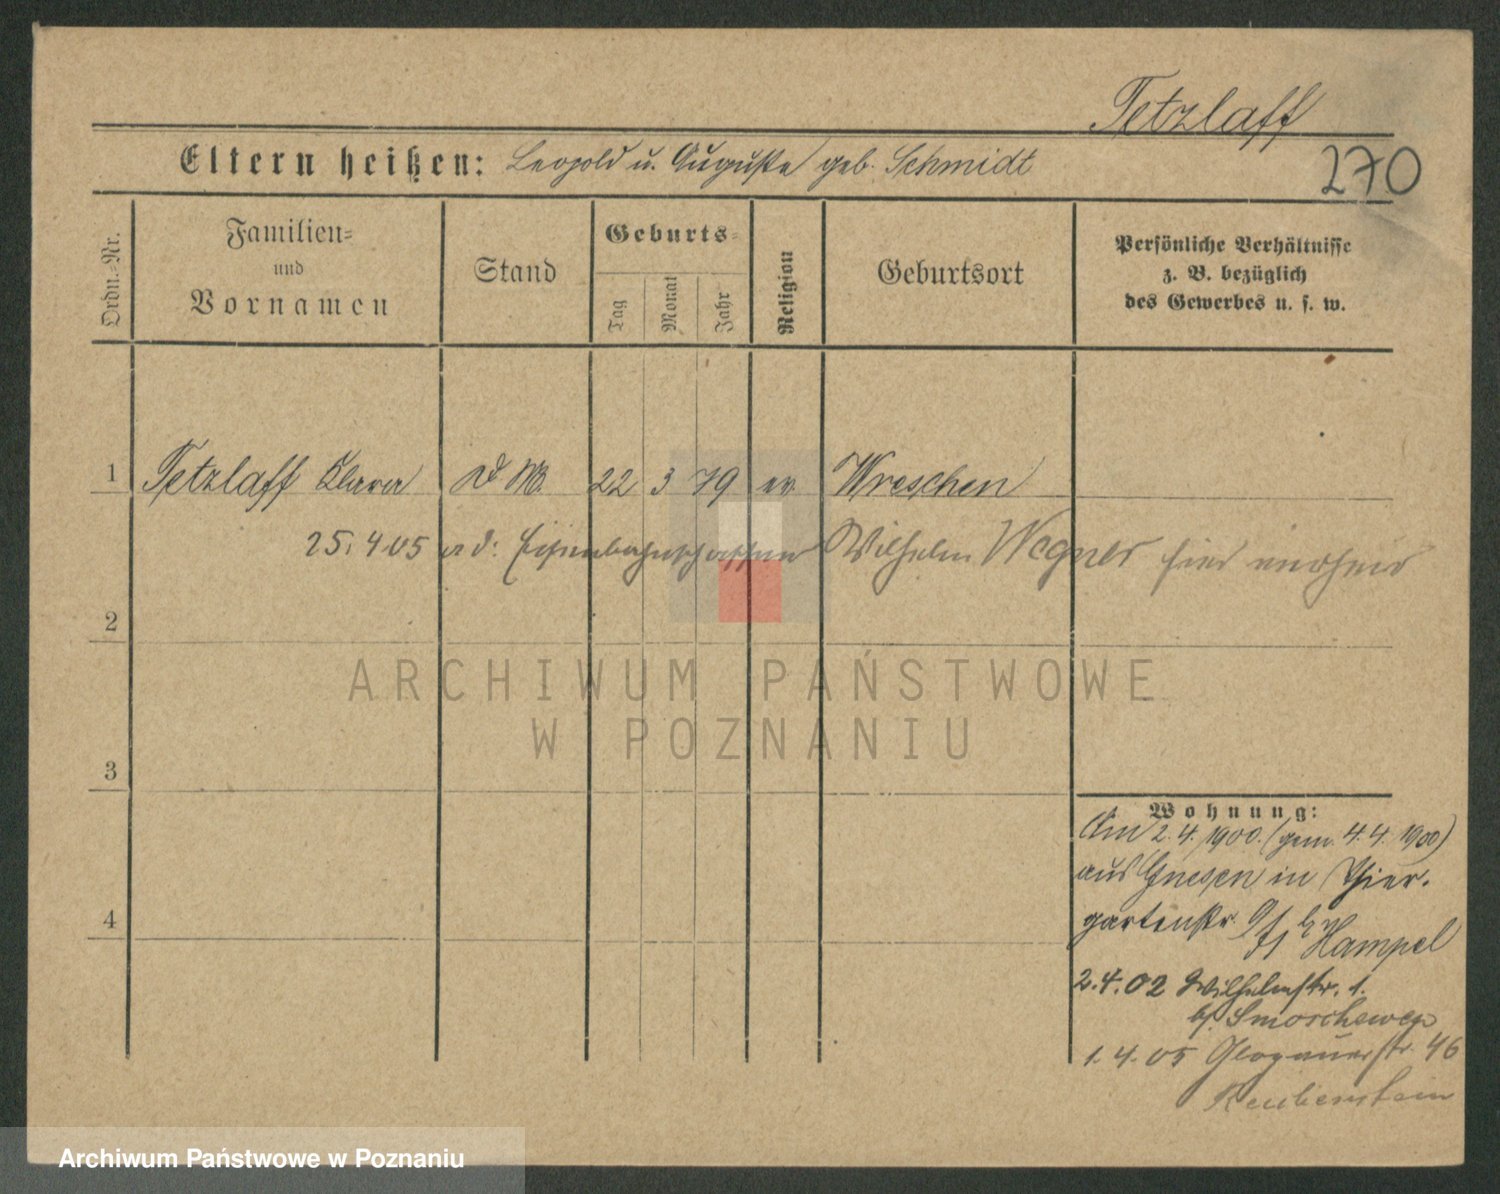 Tetzlaff
270
Eltern heißen: Leopold u. Auguste geb. Schmidt
Ordn.-Nr.
Familien-
und
Vornamen
Stand
Geburts-
Tag
Monat
Jahr
Religion
Geburtsort
Persönliche Verhältnisse
z. B. bezüglich
des Gewerbes u. s. w.
1 Tetzlaff Klara 22 3 79 ev. Wreschen
25.4.05 Eisenbahnschaffner Wilhelm Wegner hier
2
3
4
Wohnung:
Am 2.4.1900. (gem. 4.4.1900)
aus Gnesen in Thier-
gartenstr.
Hampel
2.4.02 Wilhelmstr. 1.
b/
1.4.05 Glogauerstr. 46
ARCHIWUM PAŃSTWOWE
W POZNANIU
Archiwum Państwowe w Poznaniu